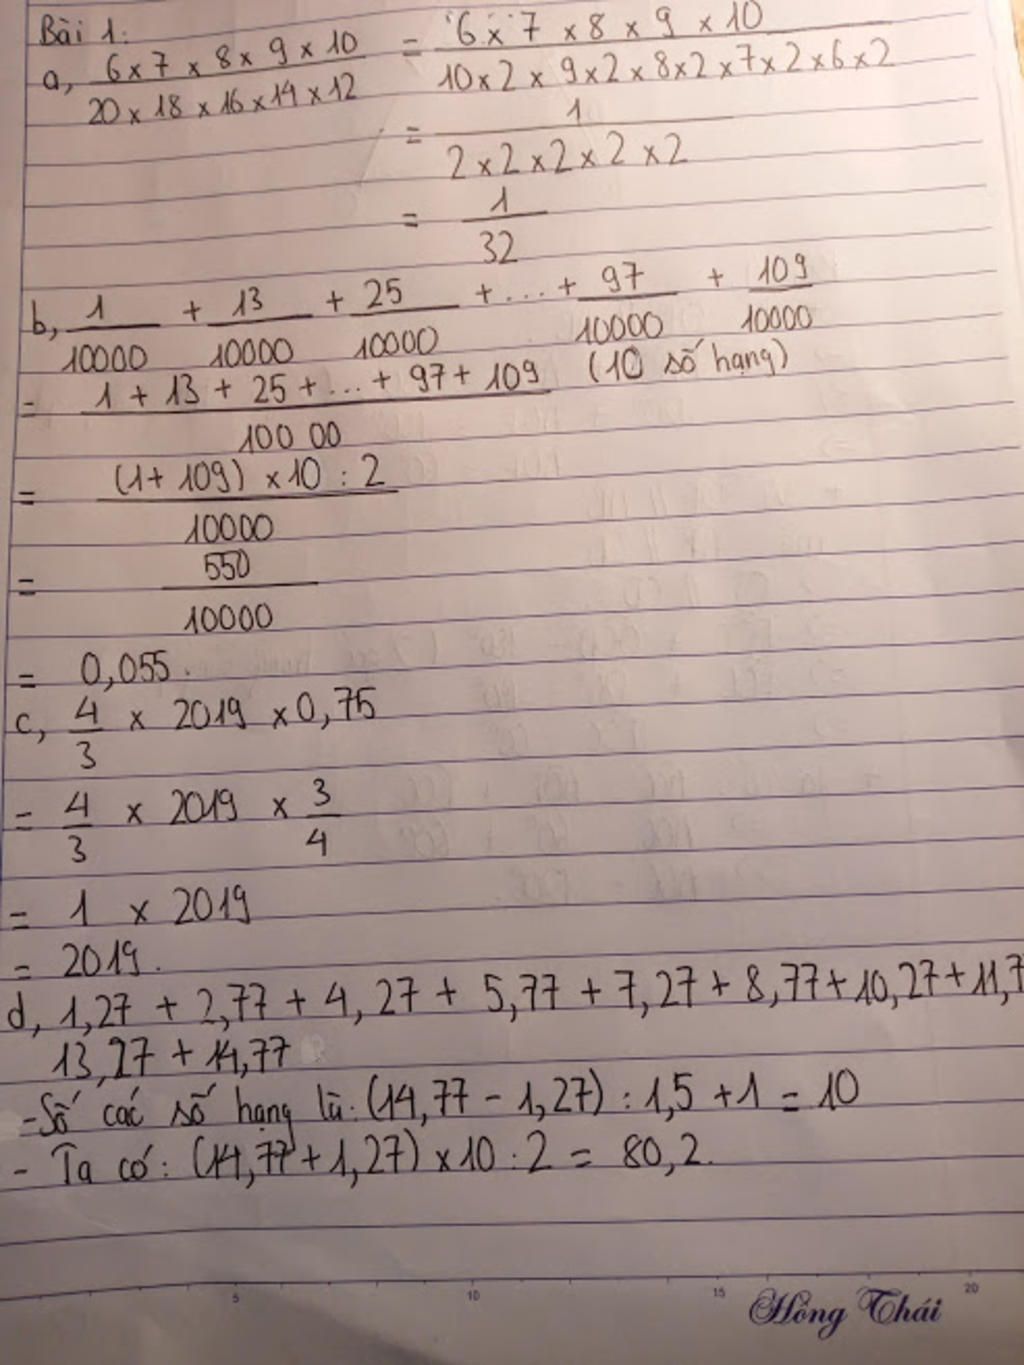 Bài 1:
a, 6 x 7 x 8 x 9 x 10 / 20 x 18 x 16 x 14 x 12 = 6 x 7 x 8 x 9 x 10 / 10 x 2 x 9 x 2 x 8 x 2 x 7 x 2 x 6 x 2
= 1 / 2 x 2 x 2 x 2 x 2
= 1 / 32
b, 1/10000 + 13/10000 + 25/10000 + ... + 97/10000 + 109/10000
= 1 + 13 + 25 + ... + 97 + 109 / 10000 (10 số hạng)
= (1 + 109) x 10 : 2 / 10000
= 550 / 10000
= 0,055.
c, 4/3 x 2019 x 0,75
= 4/3 x 2019 x 3/4
= 1 x 2019
= 2019.
d, 1,27 + 2,77 + 4,27 + 5,77 + 7,27 + 8,77 + 10,27 + 11,7
13,27 + 14,77
- Số các số hạng là: (14,77 - 1,27) : 1,5 + 1 = 10
- Ta có: (14,77 + 1,27) x 10 : 2 = 80,2.
5 10 15 20
Hồng Thái